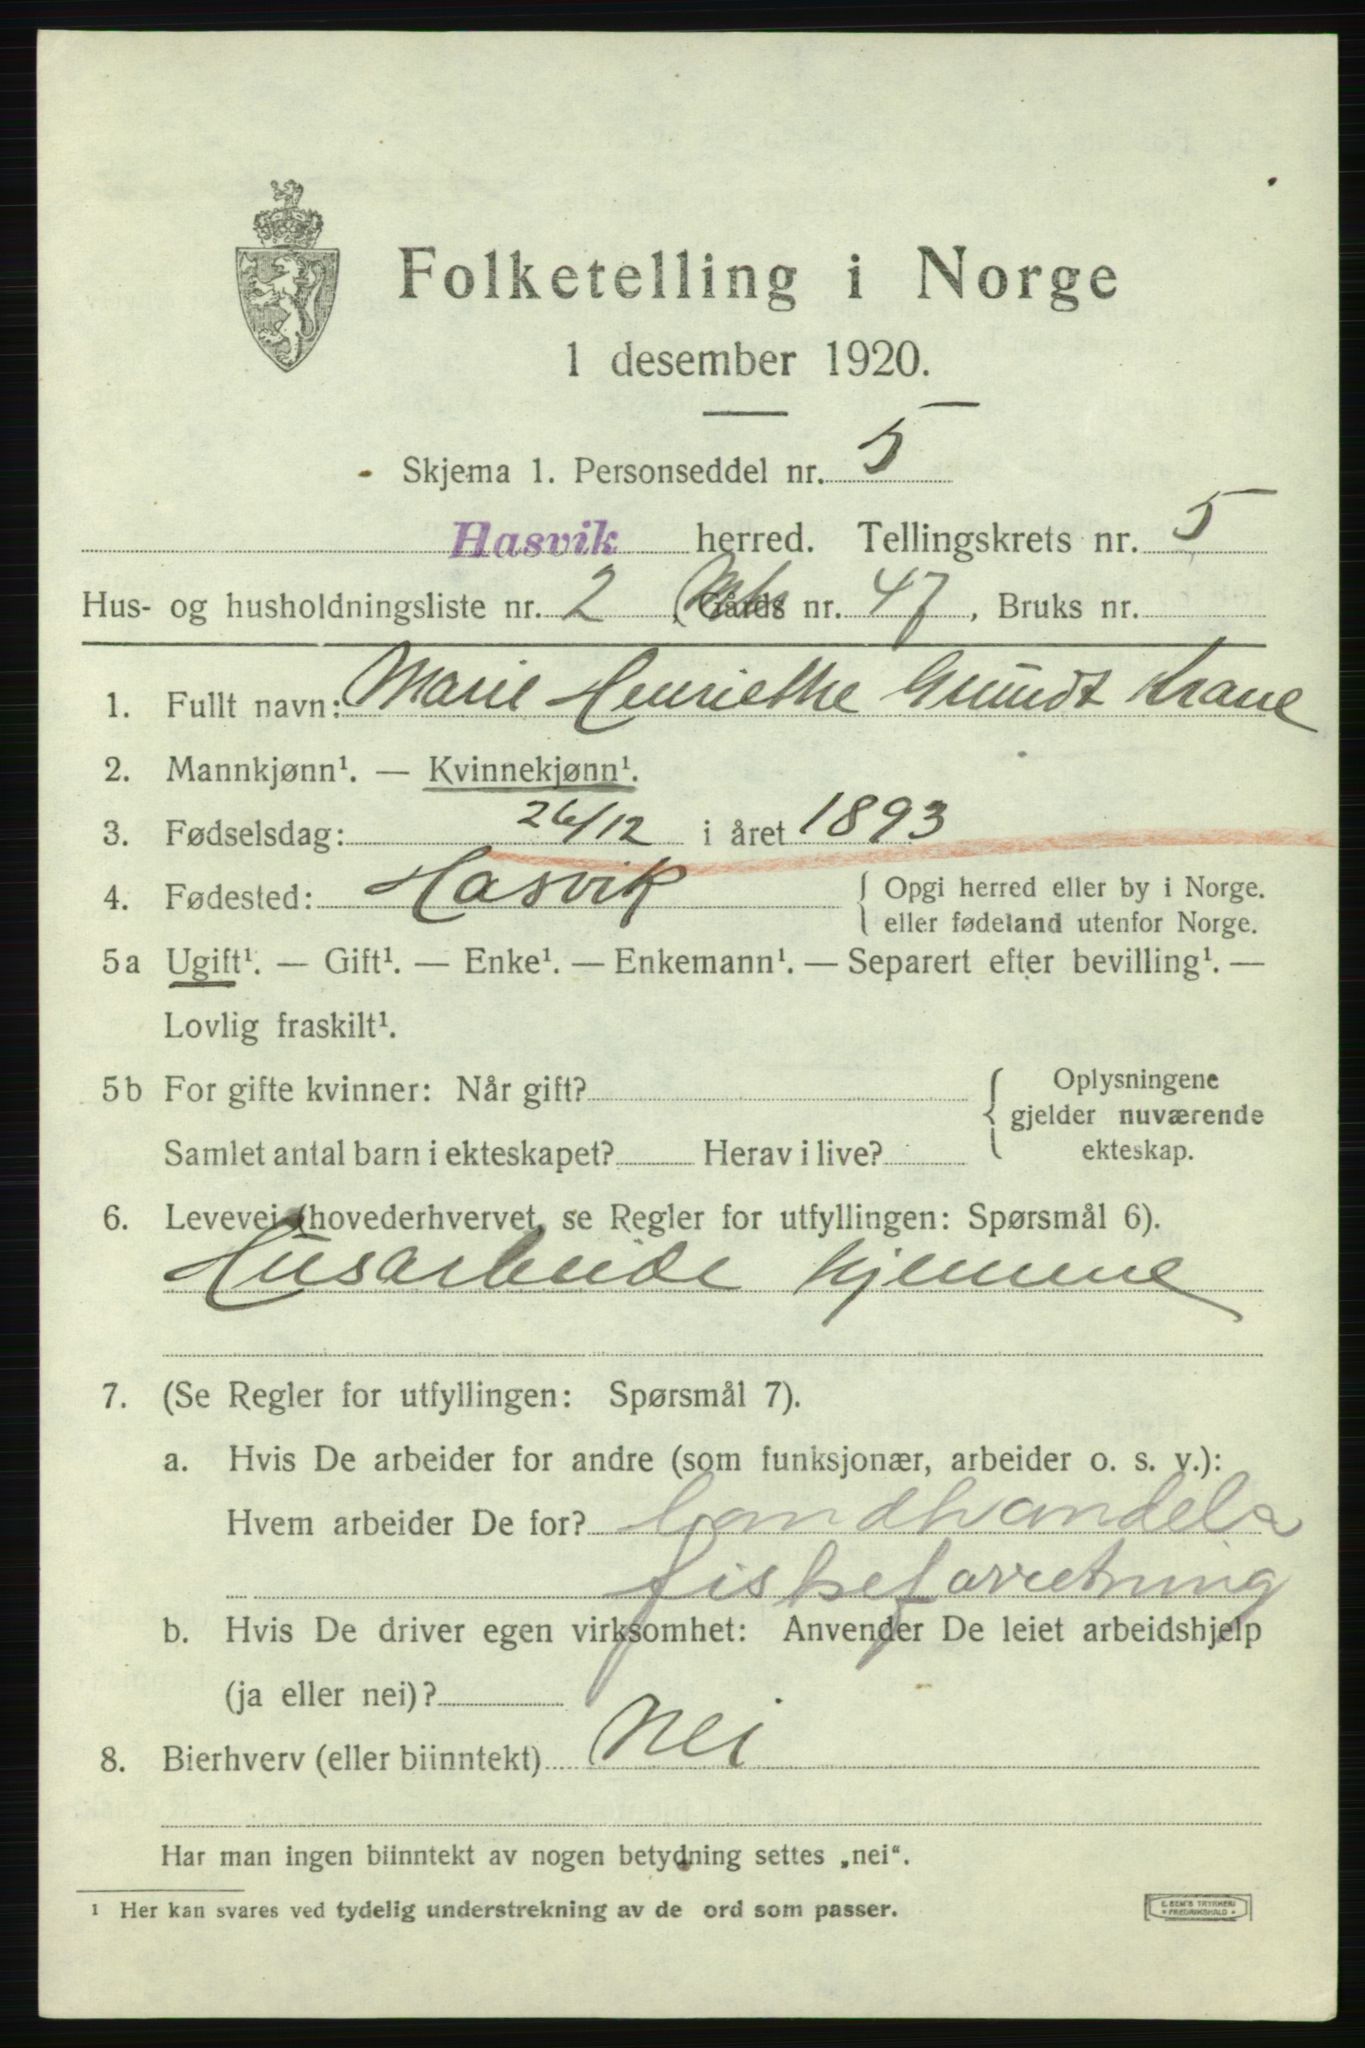 Folketelling i Norge
1 desember 1920.
Skjema 1. Personseddel nr. 5
Hasvik herred. Tellingskrets nr. 5
Hus- og husholdningsliste nr. 2, (Gårds nr. 47, Bruks nr.
1. Fullt navn: Marie Henriethe Grundt Krane
2. Mannkjønn¹. — Kvinnekjønn¹.
3. Fødselsdag: 26/12 i året 1893
4. Fødested: Hasvik { Opgi herred eller by i Norge.
eller fødeland utenfor Norge.
5a Ugift¹. — Gift¹. — Enke¹. — Enkemann¹. — Separert efter bevilling¹. —
Lovlig fraskilt¹.
5b For gifte kvinner: Når gift? { Oplysningene
gjelder nuværende
Samlet antal barn i ekteskapet? Herav i live? ekteskap.
6. Levevei (hovederhvervet, se Regler for utfyllingen: Spørsmål 6).
Husarbeide hjemme
7. (Se Regler for utfyllingen: Spørsmål 7).
a. Hvis De arbeider for andre (som funksjonær, arbeider o. s. v.):
Hvem arbeider De for? Landhandel &
fiskeforretning
b. Hvis De driver egen virksomhet: Anvender De leiet arbeidshjelp
(ja eller nei)?
8. Bierhverv (eller biinntekt) Nei
Har man ingen biinntekt av nogen betydning settes „nei“.
¹ Her kan svares ved tydelig understrekning av de ord som passer.
E. SEM'S TRYKKERI
FREDRIKSHALD